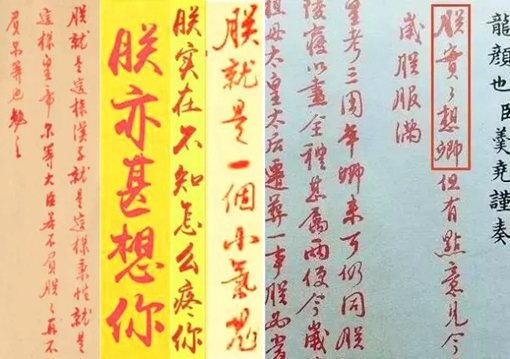 龍顏也臣羹堯謹奏
朕實々想卿但有點意見今
歲朕服滿
皇考三周年卿來可仍同朕
陵寢以盡全禮甚屬兩便今歲
祖母太皇太后遷葬一事朕
朕就是一個小氣鬼
朕实在不知怎么疼你
朕亦甚想你
朕就是這樣漢子就是這樣秉性就是
這樣皇帝尔等大臣若不負朕々再不
負尔等也勉之